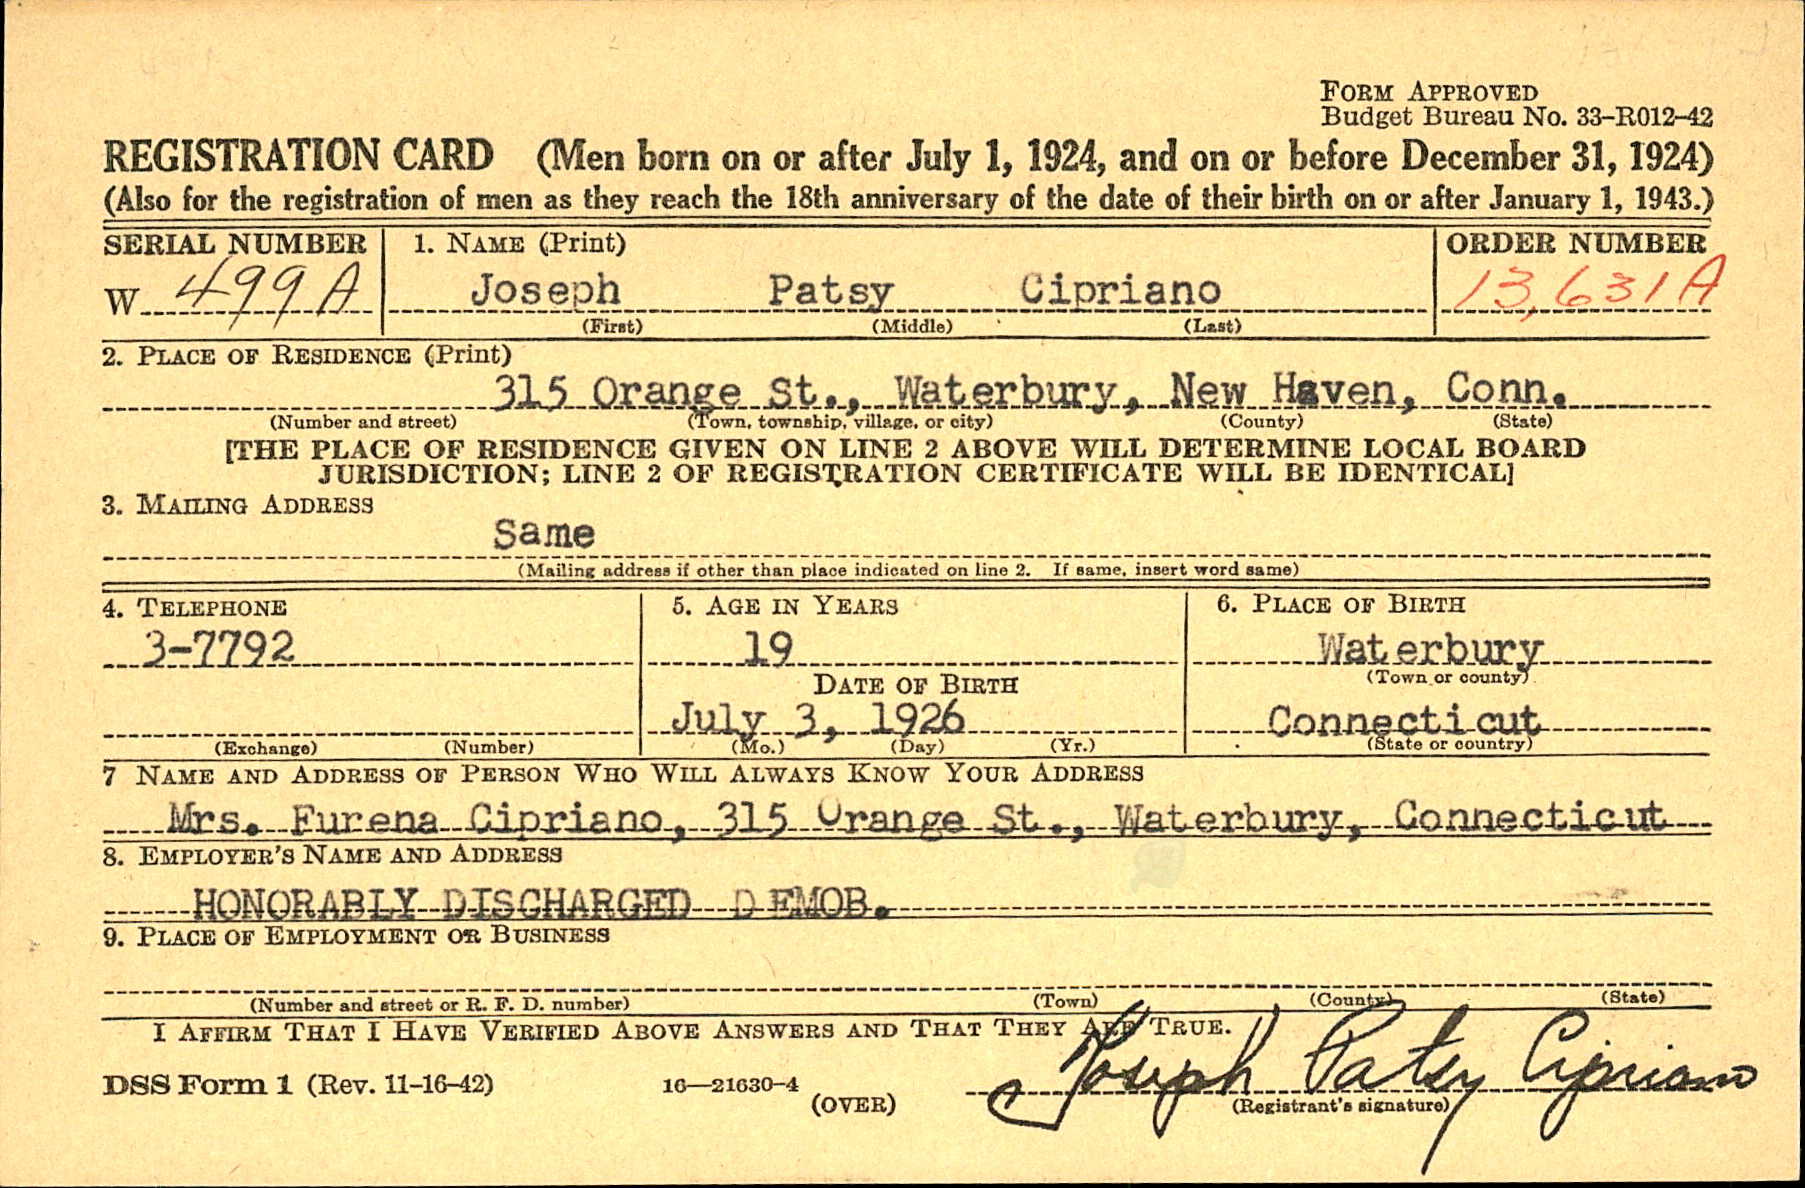 FORM APPROVED
Budget Bureau No. 33-R012-42
REGISTRATION CARD (Men born on or after July 1, 1924, and on or before December 31, 1924)
(Also for the registration of men as they reach the 18th anniversary of the date of their birth on or after January 1, 1943.)
SERIAL NUMBER 1. NAME (Print) ORDER NUMBER
W 499A Joseph Patsy Cipriano 13,631A
(First) (Middle) (Last)
2. PLACE OF RESIDENCE (Print)
315 Orange St., Waterbury, New Haven, Conn.
(Number and street) (Town, township, village, or city) (County) (State)
[THE PLACE OF RESIDENCE GIVEN ON LINE 2 ABOVE WILL DETERMINE LOCAL BOARD
JURISDICTION; LINE 2 OF REGISTRATION CERTIFICATE WILL BE IDENTICAL]
3. MAILING ADDRESS
Same
(Mailing address if other than place indicated on line 2. If same, insert word same)
4. TELEPHONE 5. AGE IN YEARS 6. PLACE OF BIRTH
3-7792 19 Waterbury
DATE OF BIRTH (Town or county)
July 3, 1926 Connecticut
(Exchange) (Number) (Mo.) (Day) (Yr.) (State or country)
7 NAME AND ADDRESS OF PERSON WHO WILL ALWAYS KNOW YOUR ADDRESS
Mrs. Furena Cipriano, 315 Orange St., Waterbury, Connecticut
8. EMPLOYER'S NAME AND ADDRESS
HONORABLY DISCHARGED DEMOB.
9. PLACE OF EMPLOYMENT OR BUSINESS
(Number and street or R. F. D. number) (Town) (County) (State)
I AFFIRM THAT I HAVE VERIFIED ABOVE ANSWERS AND THAT THEY ARE TRUE.
DSS Form 1 (Rev. 11-16-42) 16—21630-4 (OVER) Joseph Patsy Cipriano
(Registrant's signature)